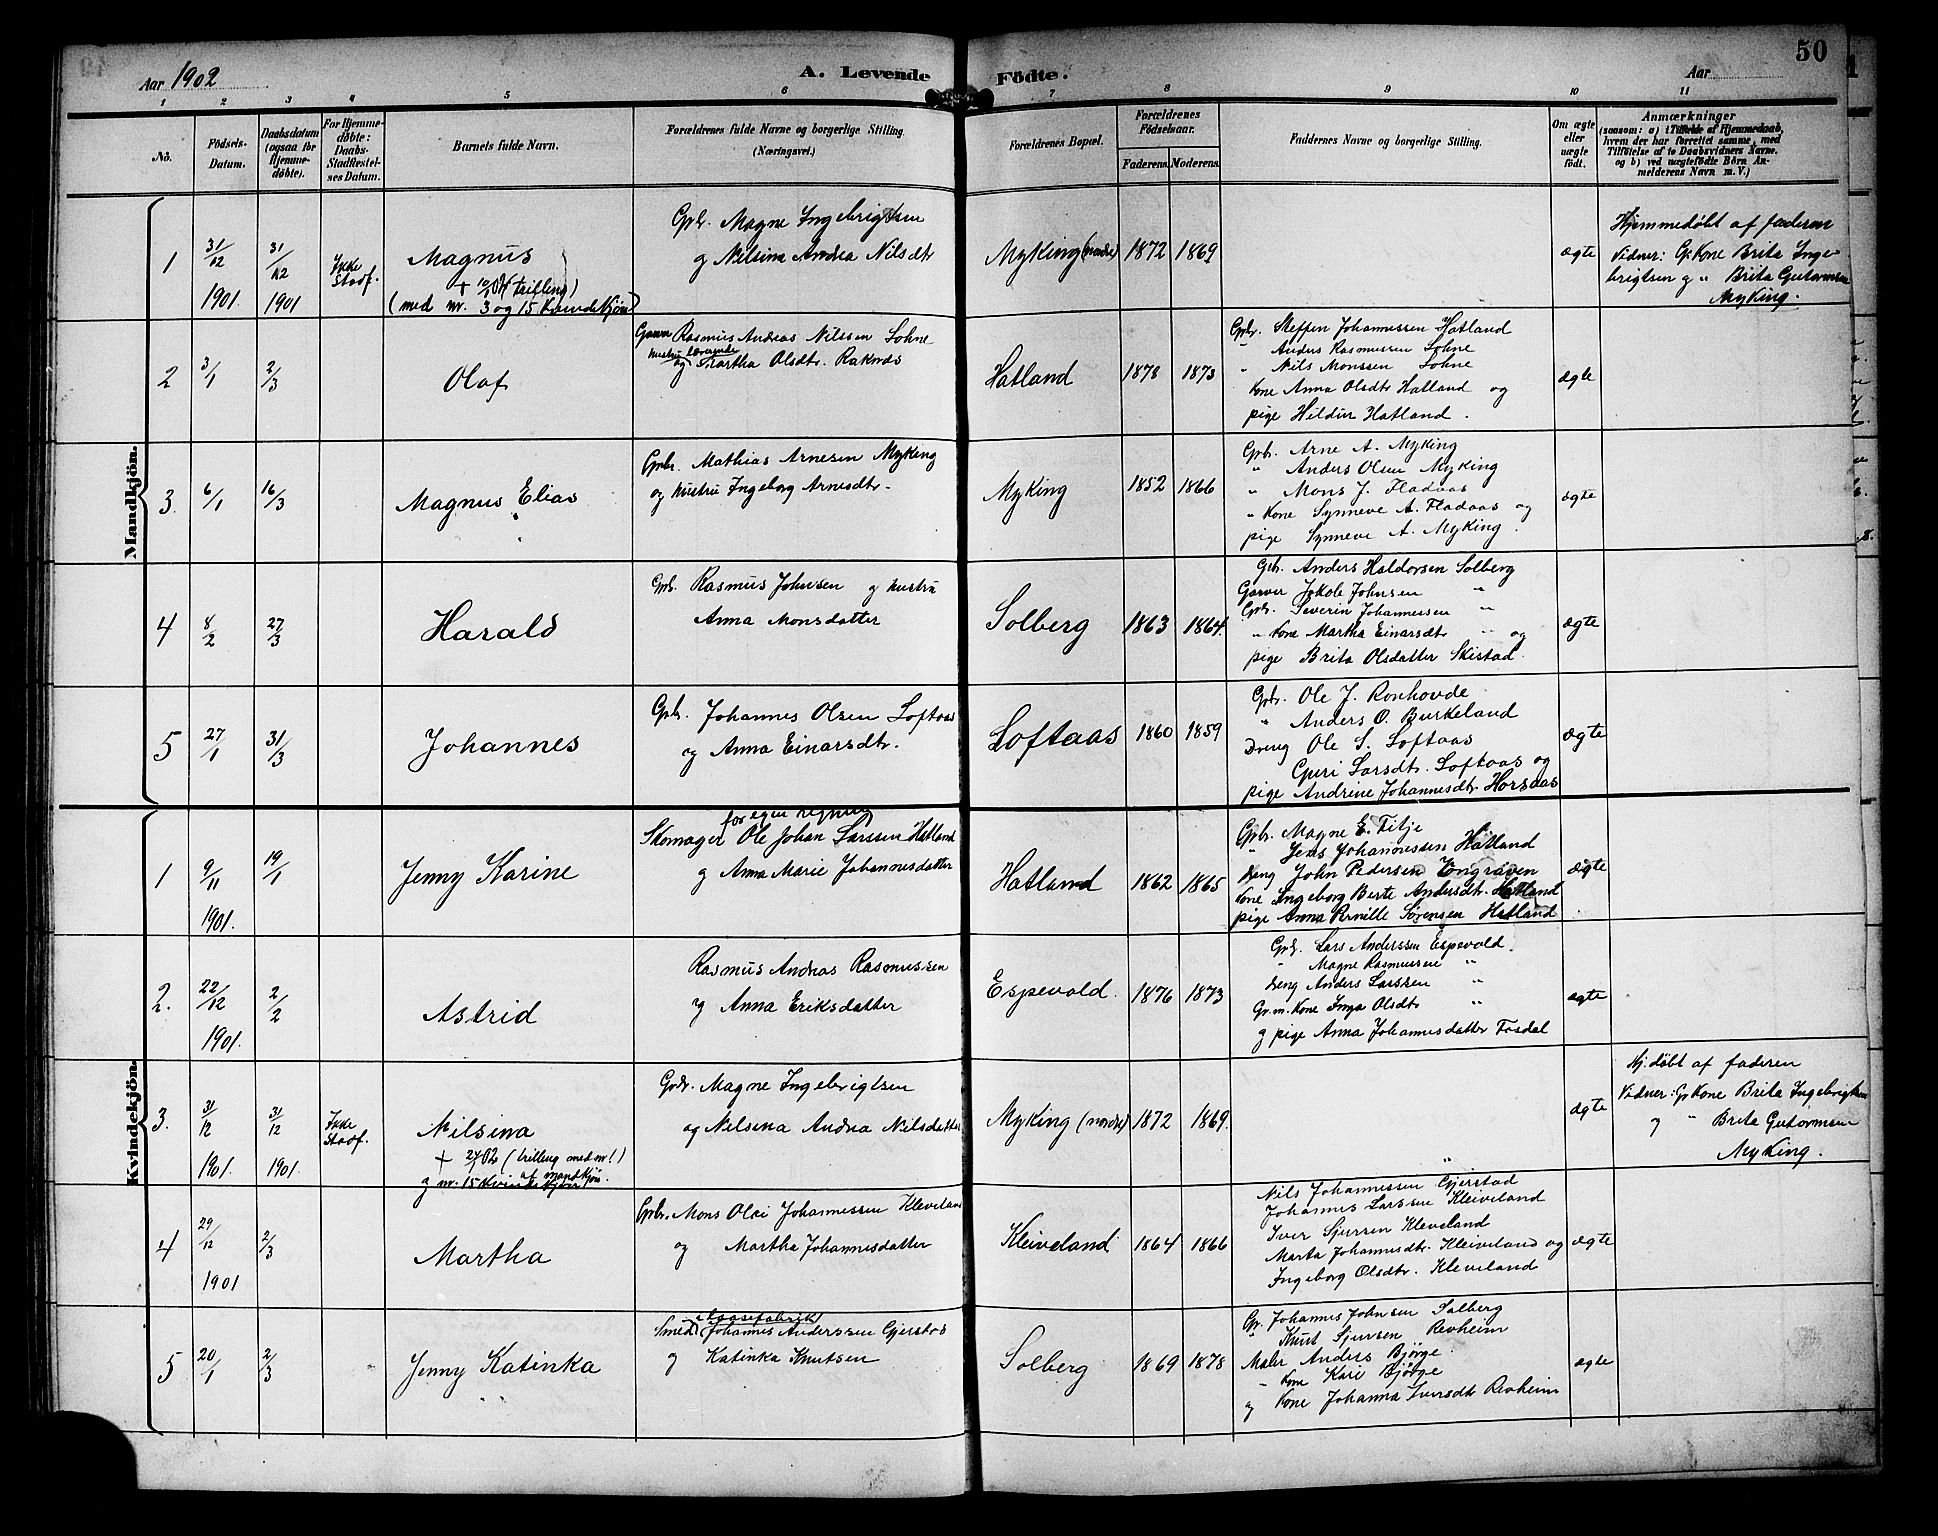 50
Aar 1902
A. Levende Födte.
Aar
1 2 3 4 5 6 7 8 9 10 11
No.
Födsels-
Datum.
Daabsdatum
(ogsaa for
Hjemme-
døbte).
For Hjemme-
døbte:
Daabs-
Stadfæstel-
ses Datum.
Barnets fulde Navn.
Forældrenes fulde Navne og borgerlige Stilling.
(Næringsvei.)
Forældrenes Bopæl.
Forældrenes
Födselsaar.
Faderens. Moderens.
Faddernes Navne og borgerlige Stilling.
Om ægte
eller
uægte
födt.
Anmærkninger
(saasom: a) i Tilfælde af Hjemmedaab,
hvem der har forrettet samme, med
Tilføielse af to Daabsvidners Navne.
og b) ved uægtefödte Börn An-
melderens Navn m. V.)
Mandkjön.
1
31/12
1901
31/12
1901
Ikke
Stadf.
Magnus
(med nr. 3 og 15 Kvindekjøn)
Gbr. Magne Ingebrigtsen
og Nilsine Andrea Nilsdtr
Myking (nordre)
1872 1869
ægte
Hjemmedøbt af faderen
Vidner: G. Kone Brita Inge-
brigtsen og " Brita Gutormsen
Myking.
2
3/1
2/3
Olaf
Garver Rasmus Andreas Nilssen Sohne
og hustru Martha Olsdtr. Raknes
Hatland
1878 1873
Gbr. Steffen Johannessen Hatland
" Anders Rasmussen Sohne
" Nils Monssen Sohne
Kone Anna Olsdtr Hatland og
pige Hildur Hatland.
ægte
3
6/1
16/3
Magnus Elias
Gbr. Mathias Arnesen Myking
og hustru Ingeborg Arnesdtr.
Myking
1852 1866
Gbr. Arne A. Myking
" Anders Olsen Myking
" Mons J. Fladaas
" Kone Synneve A. Fladaas og
pige Synneve A. Myking.
ægte
4
8/2
27/3
Harald
Gbr. Rasmus Johnsen og hustru
Anna Monsdatter
Solberg
1863 1864
Gbr. Anders Haldorsen Solberg
Garver Jakob Johnsen "
Gbr. Severin Johannessen "
" Kone Martha Einarsdtr " og
pige Brita Olsdatter Skistad.
ægte
5
27/1
31/3
Johannes
Gbr. Johannes Olsen Loftaas
og Anna Einarsdtr.
Loftaas
1860 1859
Gbr. Ole J. Ronhovde
" Anders O. Burkeland
Dreng Ole S. Loftaas
Guri Larsdtr. Loftaas og
pige Andrine Johannesdtr. Horsaas
ægte
Kvindekjön.
1
9/11
1901.
19/1
Jenny Karine
for egen regning
Skomager Ole Johan Larssen Hatland
og Anna Marie Johannesdatter
Hatland
1862 1865
Gbr. Magne E. Fitje
" Jens Johannessen Hatland
dreng John Pedersen Tongraven
Kone Ingeborg Berte Andersdtr. Hatland
pige Anna Pernille Sørensen Hatland
ægte
2.
22/12
1901.
2/2
Astrid
Rasmus Andreas Rasmussen
og Anna Eriksdatter
Espevold.
1876 1873
Gbr. Lars Anderssen Espevold.
" Magne Rasmussen "
dreng Anders Larssen "
Gr. m. Kone Inga Olsdtr "
og pige Anna Johannesdatter Fosdal
ægte
3.
31/12
1901.
31/12
1901.
Ikke
Stadf.
Nilsina
(trilling med nr 1
af mandkjøn
og nr. 15 Kvindekjøn
Gbr. Magne Ingebrigtsen
og Nelsina Andrea Nilsdatter
Myking (nordre)
1872 1869.
ægte
Hj.døbt af faderen
Vidner: G. Kone Brita Ingebrigtsen
og " Brita Gutormsen
Myking.
4
29/12
1901
2/3
Martha
Gbr. Mons Olai Johannessen Kleveland
og Martha Johannesdatter
Kleiveland
1864 1866
Nils Johannessen Gjerstad
Johannes Larssen Kleiveland
Iver Sjursen Kleveland
Marta Johannesdtr. Kleiveland og
Ingeborg Olsdtr. Kleveland
ægte
5
20/1
2/3
Jenny Katinka
Smed Johannes Anderssen Gjerstad
og Katinka Knutsen
Solberg
1869 1878
Gr. Johannes Johnsen Solberg
" Knut Sjursen Revheim
Maler Anders Bjørge
" Kone Kari Bjørge
og Kone Johanna Iversdtr Revheim
ægte